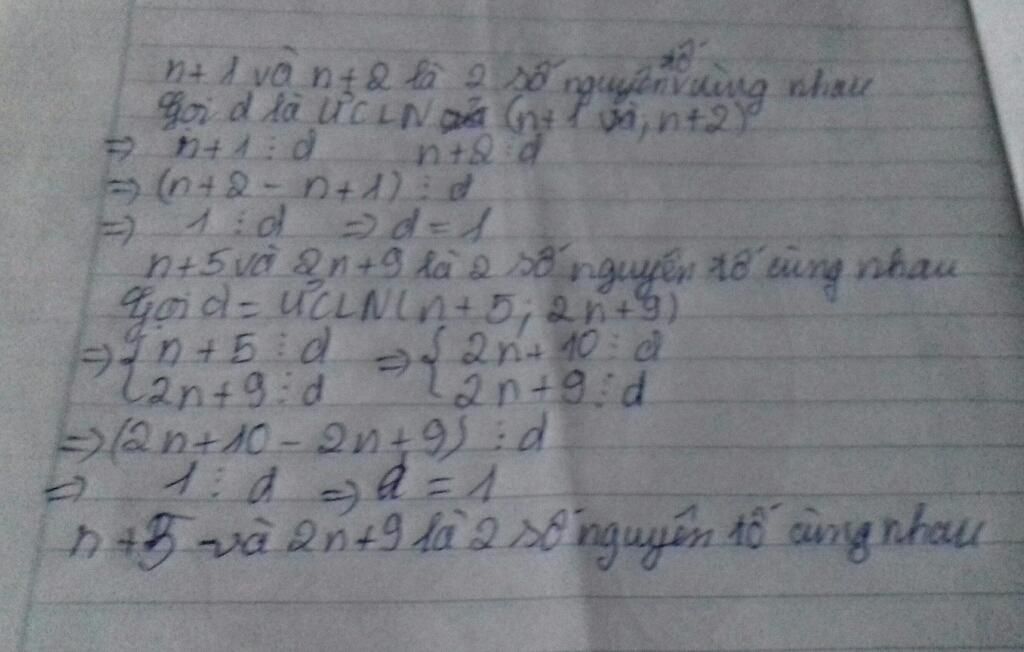 n+1 và n+2 là 2 số nguyên tố cùng nhau
Gọi d là ƯCLN (n+1 và, n+2)
=> n+1 ⋮ d n+2 ⋮ d
=> (n+2 - n+1) ⋮ d
=> 1 ⋮ d => d = 1
n+5 và 2n+9 là 2 số nguyên tố cùng nhau
Gọi d = ƯCLN(n+5; 2n+9)
=> { n+5 ⋮ d => { 2n+10 ⋮ d
{ 2n+9 ⋮ d { 2n+9 ⋮ d
=> (2n+10 - 2n+9) ⋮ d
=> 1 ⋮ d => d = 1
n+5 và 2n+9 là 2 số nguyên tố cùng nhau